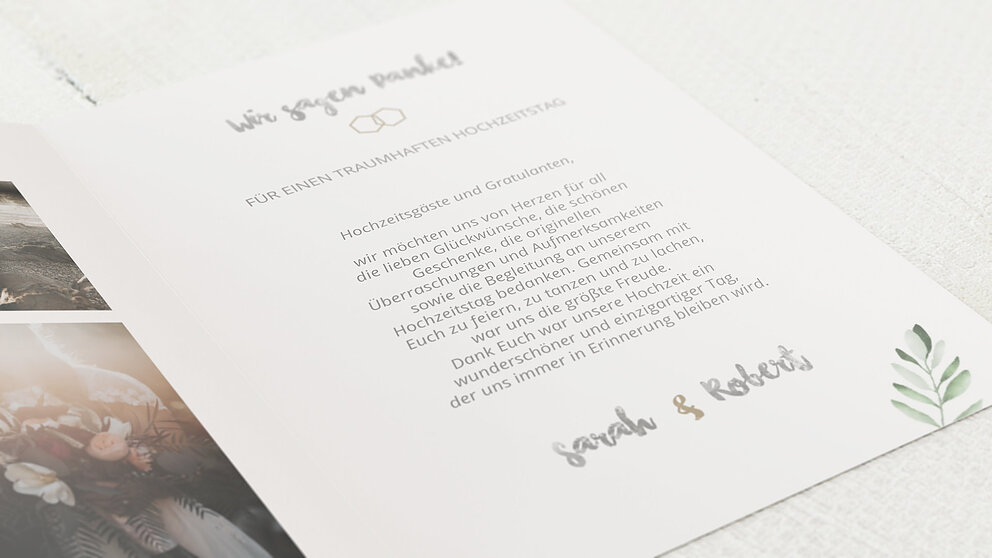 Wir sagen Danke!
FÜR EINEN TRAUMHAFTEN HOCHZEITSTAG
Hochzeitsgäste und Gratulanten,
wir möchten uns von Herzen für all
die lieben Glückwünsche, die schönen
Geschenke, die originellen
Überraschungen und Aufmerksamkeiten
sowie die Begleitung an unserem
Hochzeitstag bedanken. Gemeinsam mit
Euch zu feiern, zu tanzen und zu lachen,
war uns die größte Freude.
Dank Euch war unsere Hochzeit ein
wunderschöner und einzigartiger Tag,
der uns immer in Erinnerung bleiben wird.
Sarah & Robert